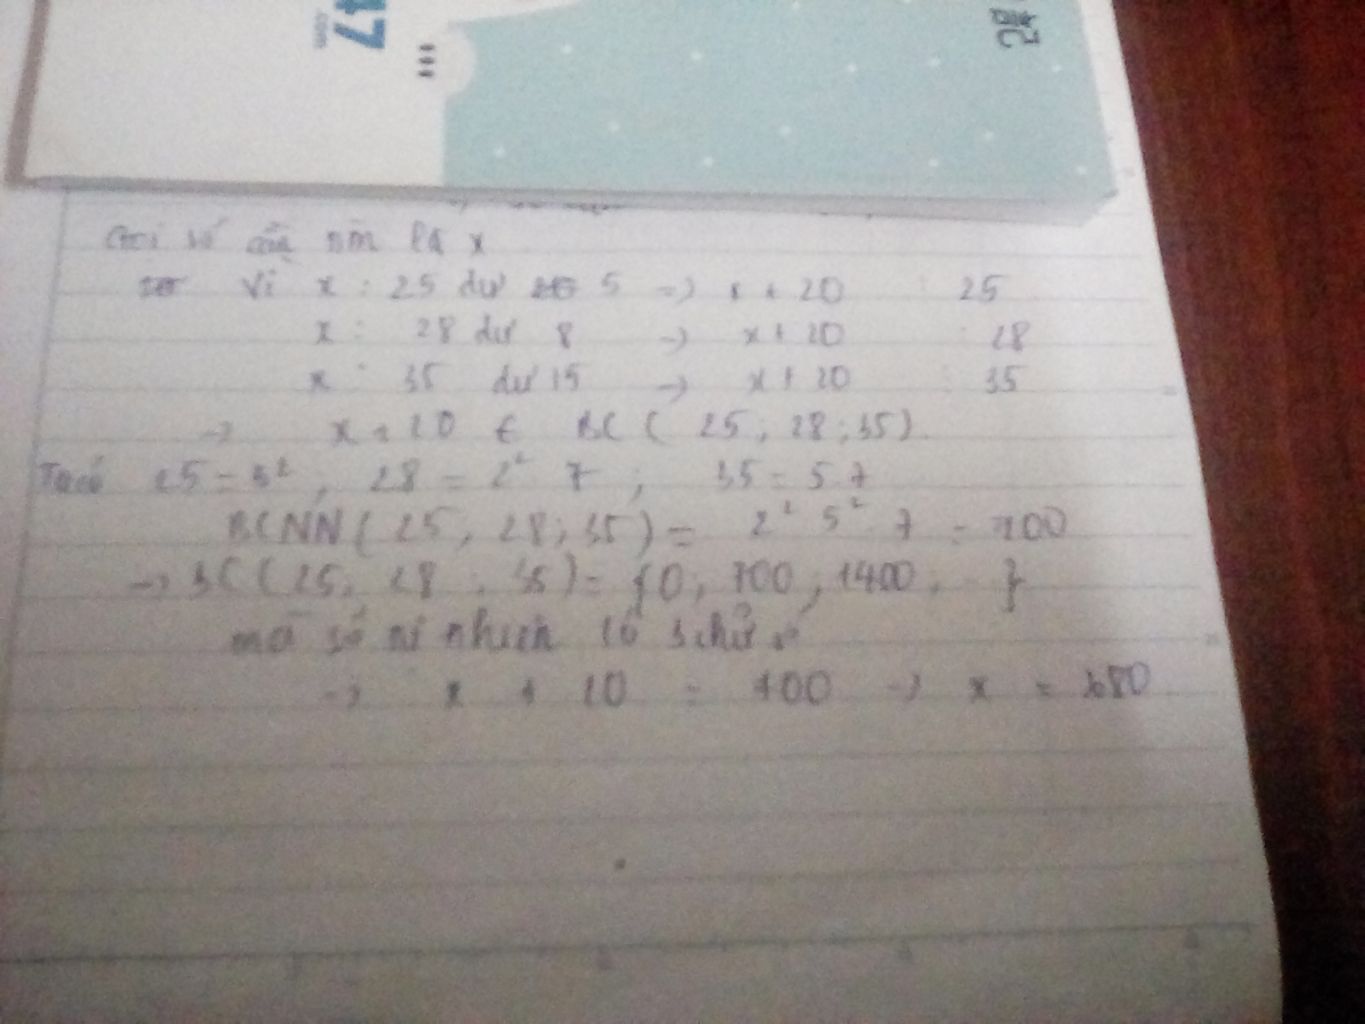 47
.com
Gọi số cần tìm là x
Vì x : 25 dư 5 => x + 20 : 25
x : 28 dư 8 -> x + 20 : 28
x : 35 dư 15 -> x + 20 : 35
-> x + 20 € BC ( 25 ; 28 ; 35 ).
Ta có 25 = 5² ; 28 = 2² 7 ; 35 = 5.7
BCNN ( 25 ; 28 ; 35 ) = 2² 5² 7 = 700
-> BC ( 25 ; 28 ; 35 ) = { 0 ; 700 , 1400 . }
mà số nhiên có 3 chữ số
-> x + 20 = 700 -> x = 680